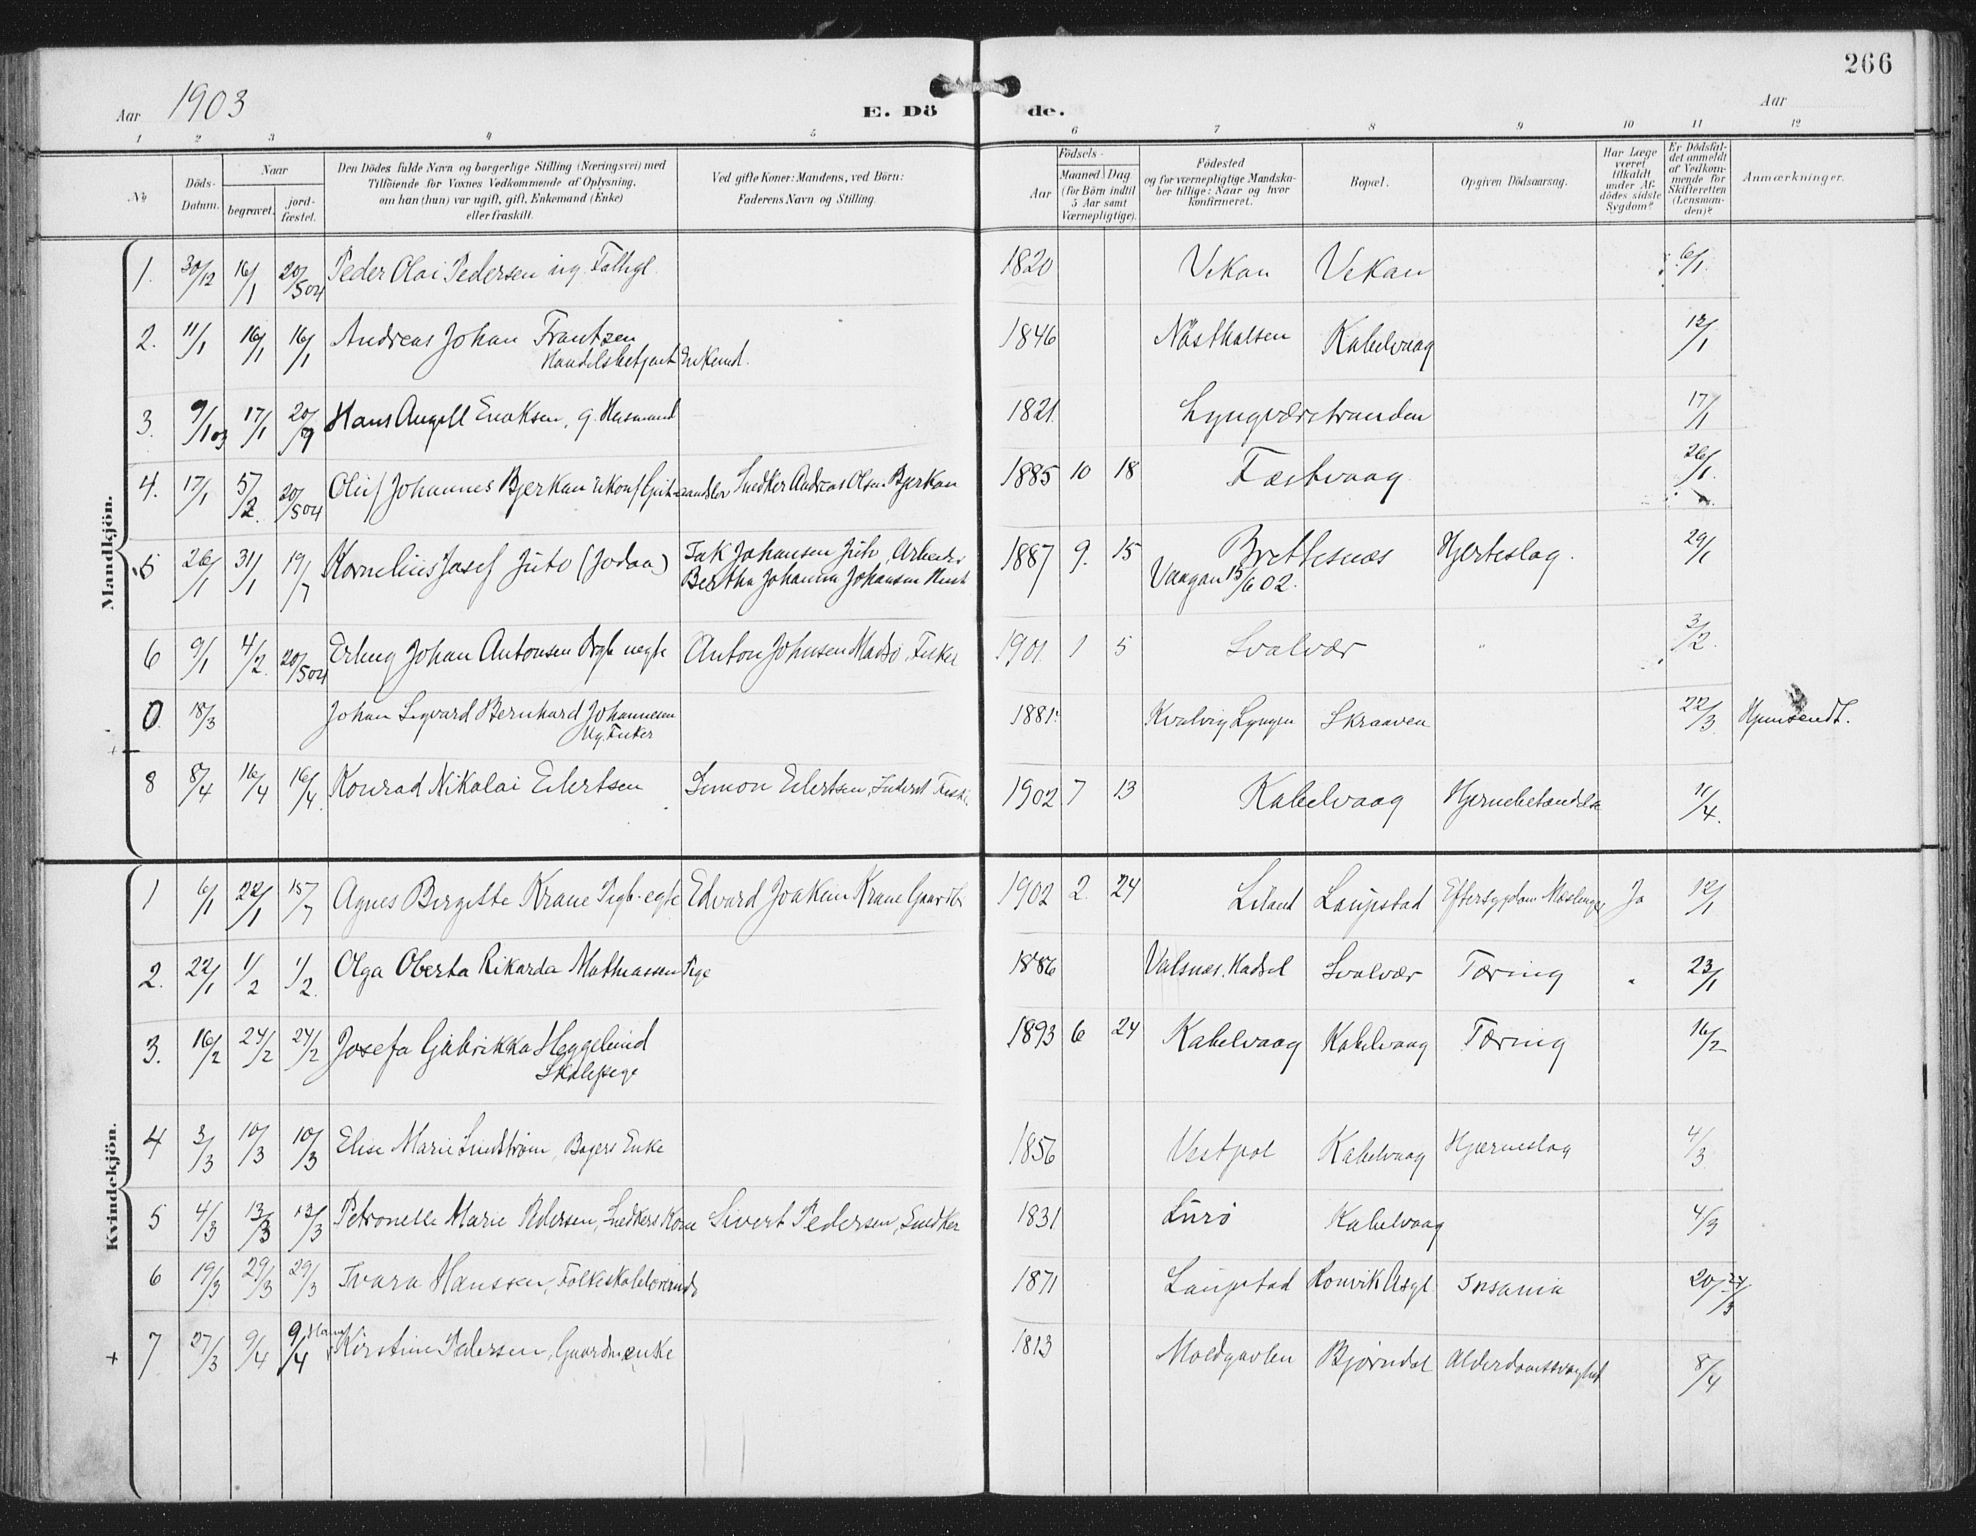 266
Aar 1903
E. Dö de.
Aar
1 2 3 4 5 6 7 8 9 10 11 12
No
Döds-Datum.
Naar
begravet.
jord-fæstet.
Den Dödes fulde Navn og borgerlige Stilling (Næringsvei) med
Tilföiende for Voxnes Vedkommende af Oplysning,
om han (hun) var ugift, gift, Enkemand (Enke)
eller fraskilt.
Ved gifte Koner: Mandens, ved Börn:
Faderens Navn og Stilling.
Födsels-
Aar
Maaned Dag
(for Börn indtil
5 Aar samt
Værnepligtige).
Födested
og for værnepligtige Mandska-
ber tillige: Naar og hvor
konfirmeret.
Bopæl.
Opgiven Dödsaarsag.
Har Læge
været
tilkaldt
under Af-
dödes sidste
Sygdom?
Er Dödsfal-
det anmeldt
af Vedkom-
mende for
Skifteretten
(Lensman-
den)?
Anmærkninger.
Mandkjön.
1. 30/12 16/1 20/5 04 Peder Olai Pedersen ug. 1820 Vekan Vekan 6/1
2. 11/1 16/1 16/1 Andreas Johan Frantzen 1846 Kabelvaag 12/1
Handelsbetjent Enkemd.
3. 9/1 03 17/1 20/9 Hans Angell Enoksen, g. Husmand 1821 Lyngværstranden 17/1
4. 17/1 5/2. 20/5 04 Oluf Johannes Bjerkan Snedker Andreas Olsen Bjerkan 1885 10 18 Festvaag 26/1
5 26/1 31/1 19/7 Kornelius Josef Juto (Jodaa) Isak Johansen Juto, Arbeider 1887 9. 15 Brettesnæs Hjerteslag. 29/1
Bertha Johanna Johansen Vaagan 15/6 02.
6 9/1 4/2. 20/5 04 Erling Johan Antonsen Drgb uegte Anton Johnsen Fisker 1901 1 5 Svolvær " 3/2.
0 18/3 Johan Sigvard Bernhard Johannesen 1881 Kvalvig Lyngen Skraaven 22/3 Hjemsendt.
Ug. Fisker
8 8/4 16/4 16/4. Konrad Nikolai Eilertsen Simon Eilertsen, 1902 7 13 Kabelvaag Hjernebetændelse 11/4.
Kvindekjön.
1 6/1 22/1 15/7 Agnes Birgitte Krane Pigb. egte Edvard Joakim Krane Gaardb. 1902 2. 24 Liland Laupstad Eftersygdom Mæslinger Ja 12/1
2. 22/1 1/2 1/2. Olga Oberta Rikarda Mathiassen Pige 1886 Valsnæs, Hadsel Svolvær Tæring " 23/1
3. 16/2 24/2 24/2 Josefa Gjabrikka Heggelund 1893 6 24 Kabelvaag Kabelvaag Tæring 16/2
Skolepige
4 3/3 10/3 10/3 Elise Marie Lindstrøm, Bagers Enke 1856 Vestpol Kabelvaag Hjerneslag 4/3.
5 4/3 13/3 13/3 Petronelle Marie Pedersen, Snedkers Kone Sivert Pedersen, Snedker 1831 Lurø Kabelvaag 4/3
6 19/3 29/3 29/3 Ivara Hanssen, Folkeskolelærerinde 1871 Laupstad Ronvik Asyl. Insania 20/ 24/3
+ 7 27/3 9/4 9/4 Kirstine Pedersen, Gaardm.enke 1813 Moldgavlen Bjørndal Alderdomssvaghed 8/4